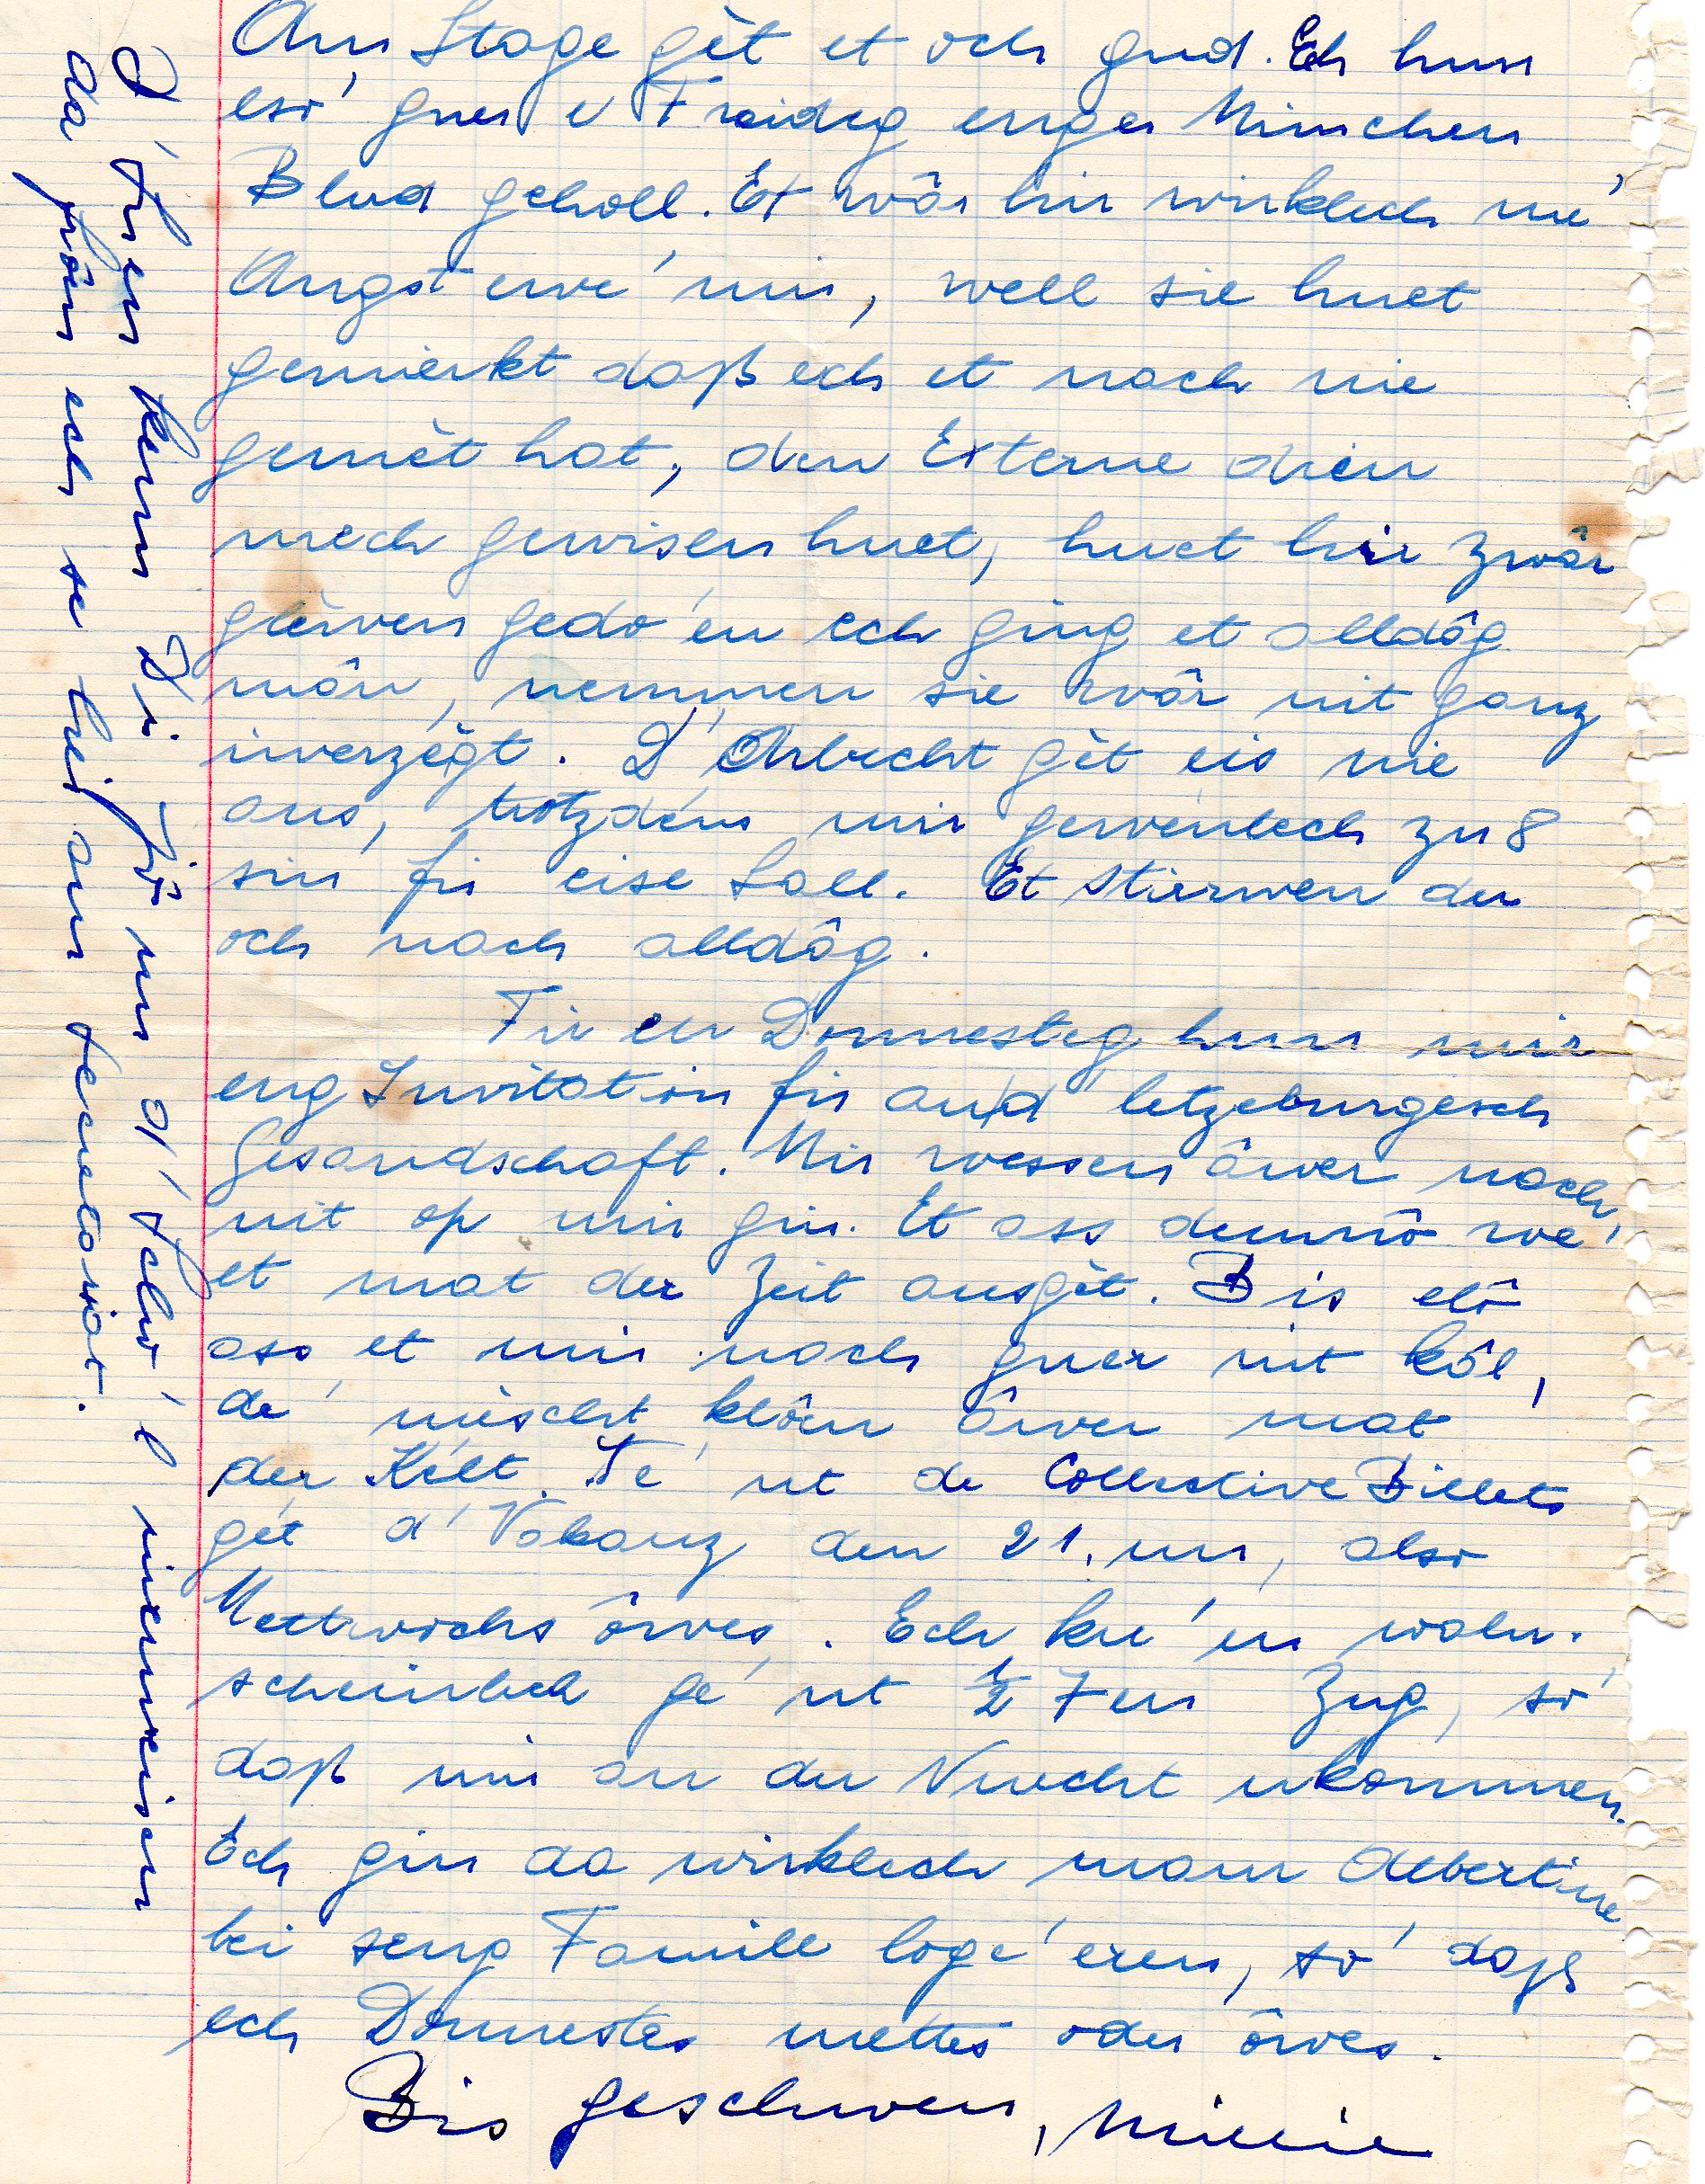 Am Stage gèt et och gud. Ech hun
esó guer e Freideg enger Mimchen
Blud geholl. Et wôr hir wirklech mé
Angst ewé mir, well sie huet
gemierkt daß ech et nach nie
gemèt hat, den Externe dién
mech gewisen huet, huet hir zwôr
gléwen gedoén ech ging et alldôg
môn, nemmen sie wôr nit ganz
iwerzégt. D'Arbecht gèt eis nie
aus, trotzdém mir gewénlech zu 8
sin fir eise Sall. Et stierwen der
och nach alldôg.
Fir en Donnesteg hun mir
eng Invitation fir and letzeburgesch
Gesandschaft. Mir wessen âwer nach
nit op mir gin. Et ass demnô wé
et mat der Zeit ausgèt. Bis elô
ass et mir nach guer nit kâl,
dé mèscht klôen âwer mat
der Kélt. Fé nt de Collective Billets
gèt d'Vakanz den 21. un, also
Mettwochs ôwes. Ech kréen wahr-
scheinlech gént 1/2 7 en Zug, só
daß mir an der Nuecht ukommen.
Ech gin da wirklech mam Albertine
bei seng Famill logéeren, só daß
ech Donnestes mettes oder ôwes.
Bis geschwen, Millie
D'Sŕen kenn Dir jô un d'Schoúl nierweisen
da fôen ech se bei am Secretariat.